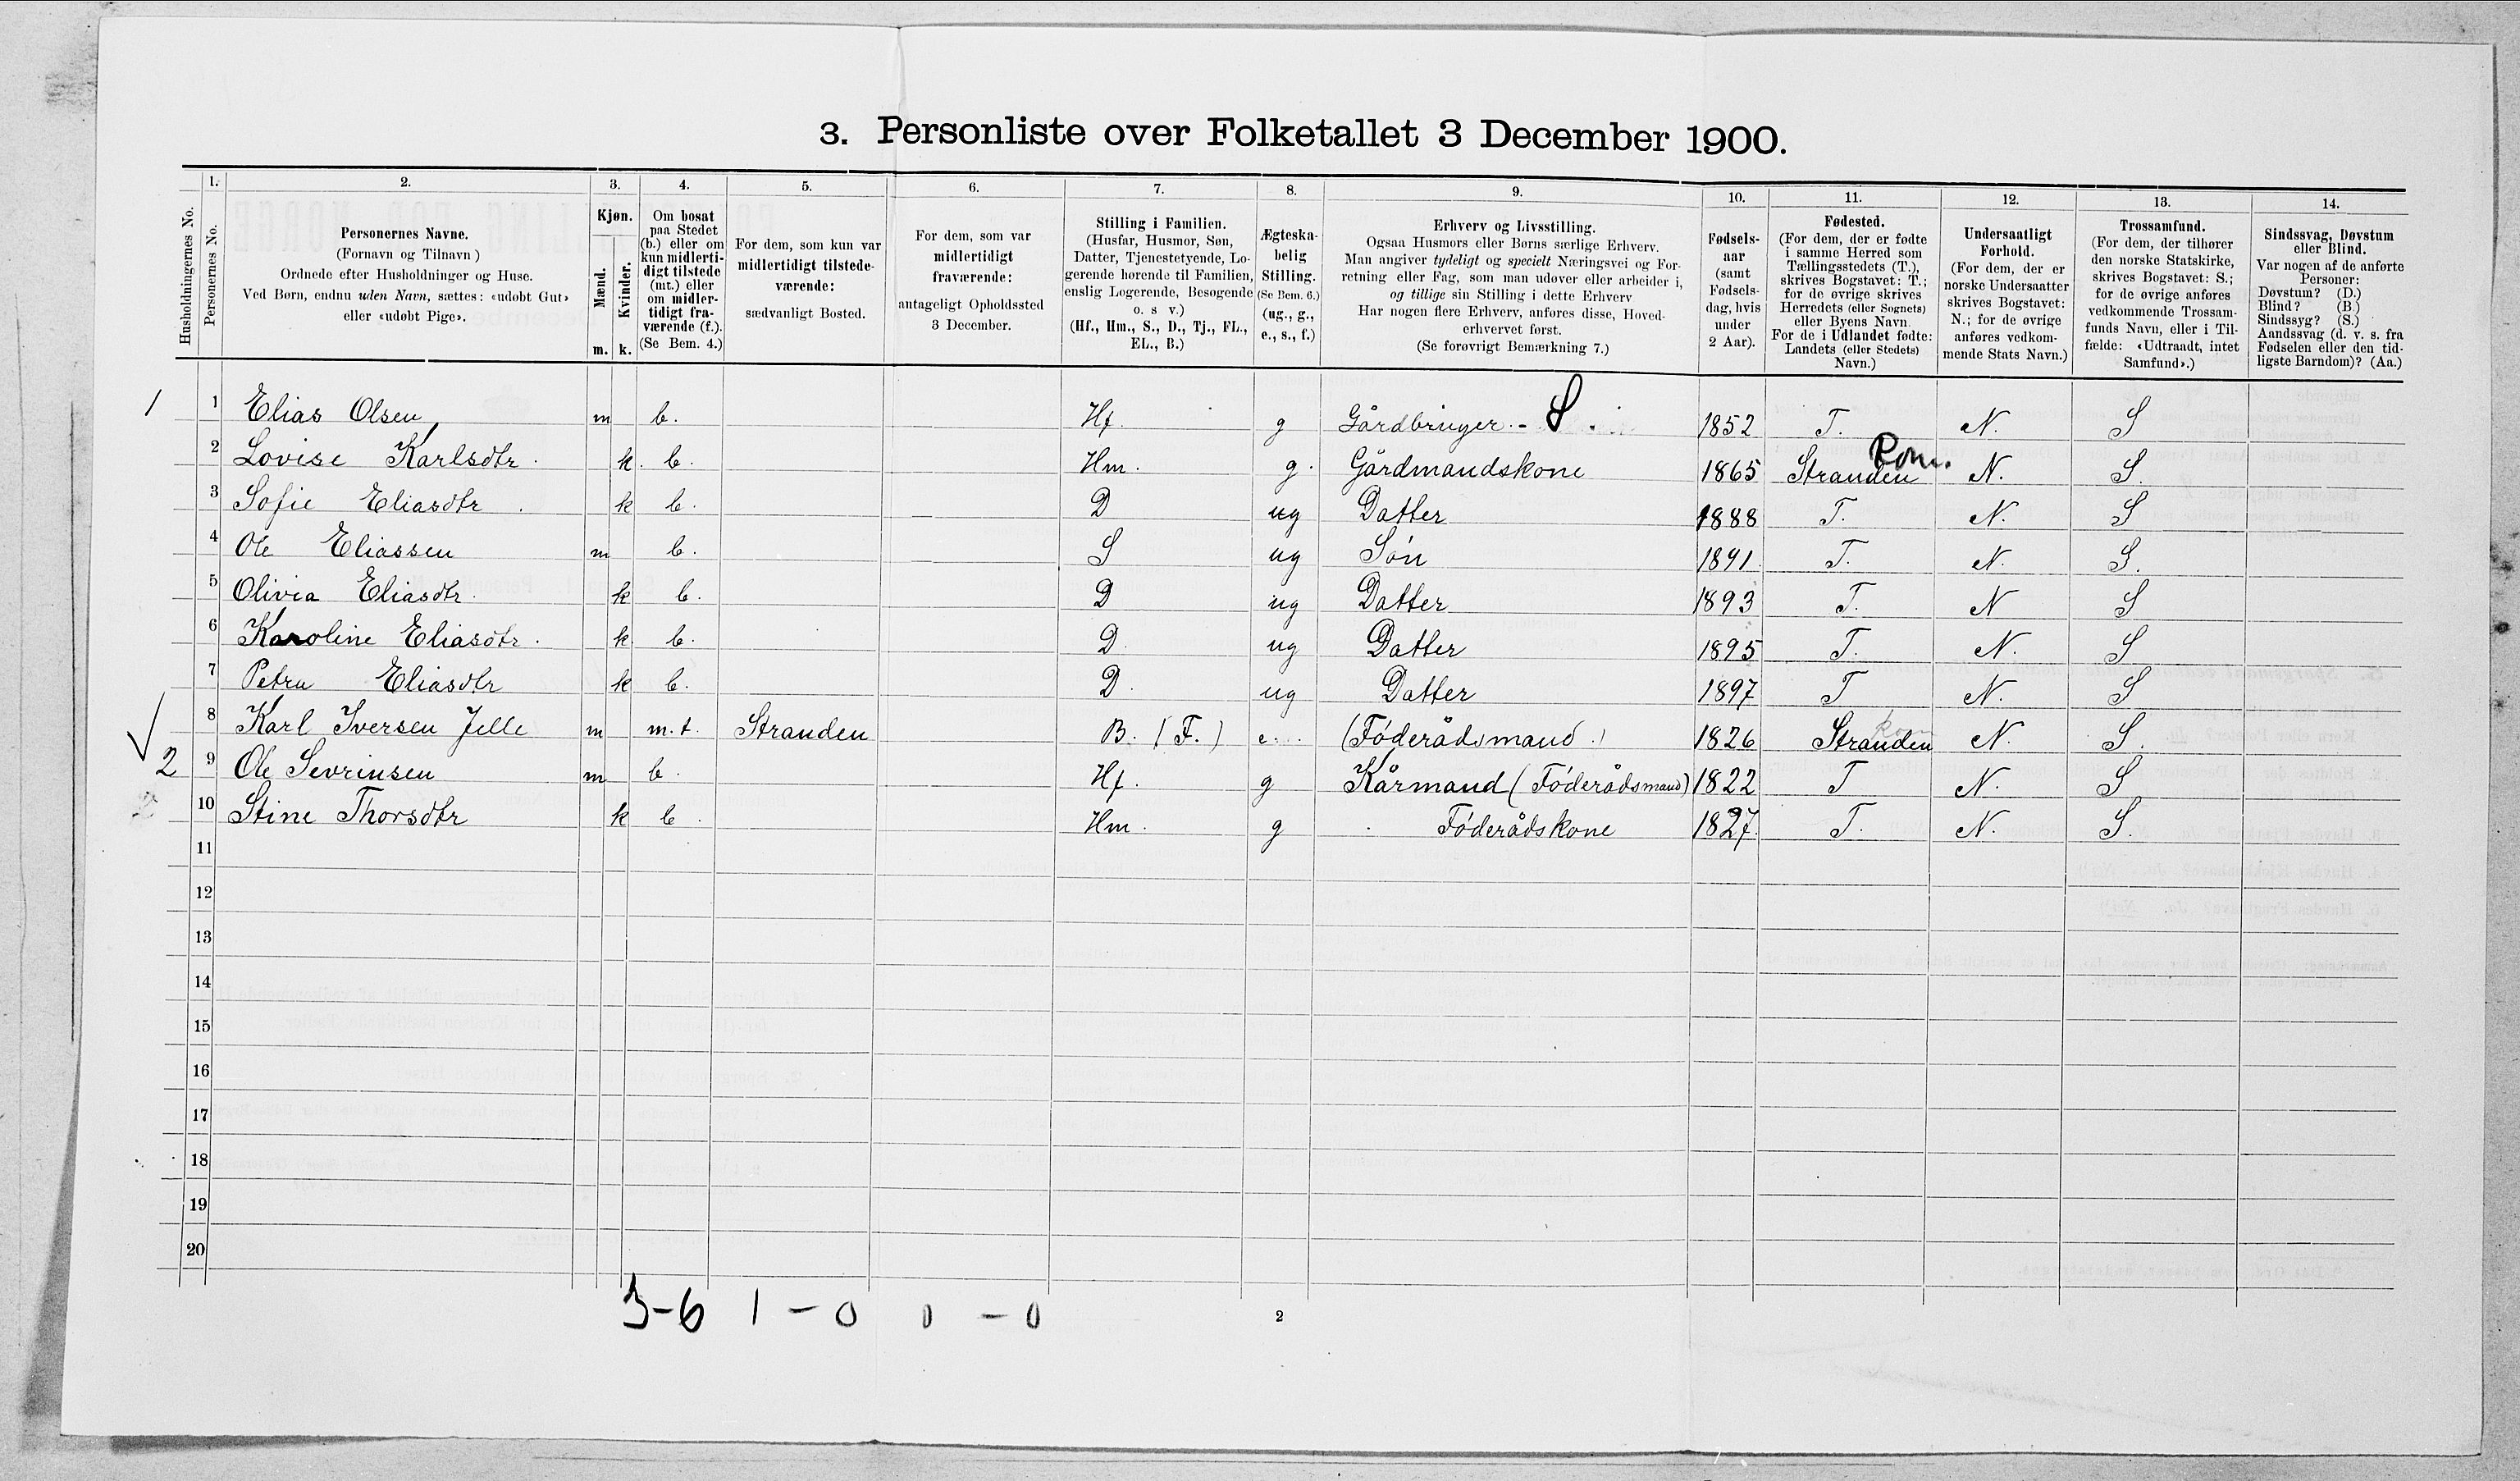 3. Personliste over Folketallet 3 December 1900.
Husholdningernes No.
1. Personernes No.
2. Personernes Navne.
(Fornavn og Tilnavn)
Ordnede efter Husholdninger og Huse.
Ved Børn, endnu uden Navn, sættes: «udøbt Gut»
eller «udøbt Pige».
3. Kjøn.
Mænd. m.
Kvinder. k.
4. Om bosat
paa Stedet
(b.) eller om
kun midlerti-
digt tilstede
(mt.) eller
om midler-
tidigt fra-
værende (f.).
(Se Bem. 4.)
5. For dem, som kun var
midlertidigt tilstede-
værende:
sædvanligt Bosted.
6. For dem, som var
midlertidigt
fraværende:
antageligt Opholdssted
3 December.
7. Stilling i Familien.
(Husfar, Husmor, Søn,
Datter, Tjenestetyende, Lo-
gerende hørende til Familien,
enslig Logerende, Besøgende
o. s v.)
(Hf., Hm., S., D., Tj., FL.,
EL., B.)
8. Ægteska-
belig
Stilling.
(Se Bem. 6.)
(ug., g.,
e., s., f.)
9. Erhverv og Livsstilling.
Ogsaa Husmors eller Børns særlige Erhverv.
Man angiver tydeligt og specielt Næringsvei og For-
retning eller Fag, som man udøver eller arbeider i,
og tillige sin Stilling i dette Erhverv
Har nogen flere Erhverv, anføres disse, Hoved-
erhvervet først.
(Se forøvrigt Bemærkning 7.)
10. Fødsels-
aar
(samt
Fødsels-
dag, hvis
under
2 Aar).
11. Fødested.
(For dem, der er fødte
i samme Herred som
Tællingsstedets (T.),
skrives Bogstavet: T.;
for de øvrige skrives
Herredets (eller Sognets)
eller Byens Navn.
For de i Udlandet fødte:
Landets (eller Stedets)
Navn.)
12. Undersaatligt
Forhold.
(For dem, der er
norske Undersaatter
skrives Bogstavet:
N.; for de øvrige
anføres vedkom-
mende Stats Navn.)
13. Trossamfund.
(For dem, der tilhører
den norske Statskirke,
skrives Bogstavet: S.;
for de øvrige anføres
vedkommende Trossam-
funds Navn, eller i Til-
fælde: «Udtraadt, intet
Samfund».)
14. Sindssvag, Døvstum
eller Blind.
Var nogen af de anførte
Personer:
Døvstum? (D.)
Blind? (B.)
Sindssyg? (S.)
Aandssvag (d. v. s. fra
Fødselen eller den tid-
ligste Barndom)? (Aa.)
1 1 Elias Olsen m b. Hf. g Gårdbruger - S. 1852 T. N. S
2 Lovise Karlsdtr. k. b. Hm. g. Gårdmandskone 1865 Stranden Rom. N. S.
3 Sofie Eliasdtr. k b. D ug Datter 1888 T. N. S
4 Ole Eliassen m b. S ug Søn 1891 T. N. S.
5 Olivia Eliasdtr. k b. D ug Datter 1893 T. N S
6 Karoline Eliasdtr. k b. D ug Datter 1895 T. N. S
7 Petra Eliasdtr k b. D. ug Datter 1897 T N. S
8 Karl Iversen Jelle m m.t. Stranden B. (F.) e. (Føderådsmand.) 1826 Stranden N. S.
2 9 Ole Sevrinsen m b. Hf. g Kårmand (Føderådsmand) 1822 T N. S
2 10 Stine Thorsdtr k b. Hm. g Føderådskone 1827. T. N. S.
11
12
13
14
15
16
17
18
19
20
3-6 1-0 0-0
2